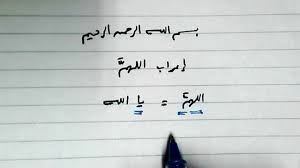 بسم الله الرحمن الرحيم
إعراب اللهمَّ
اللهمَّ = يا الله